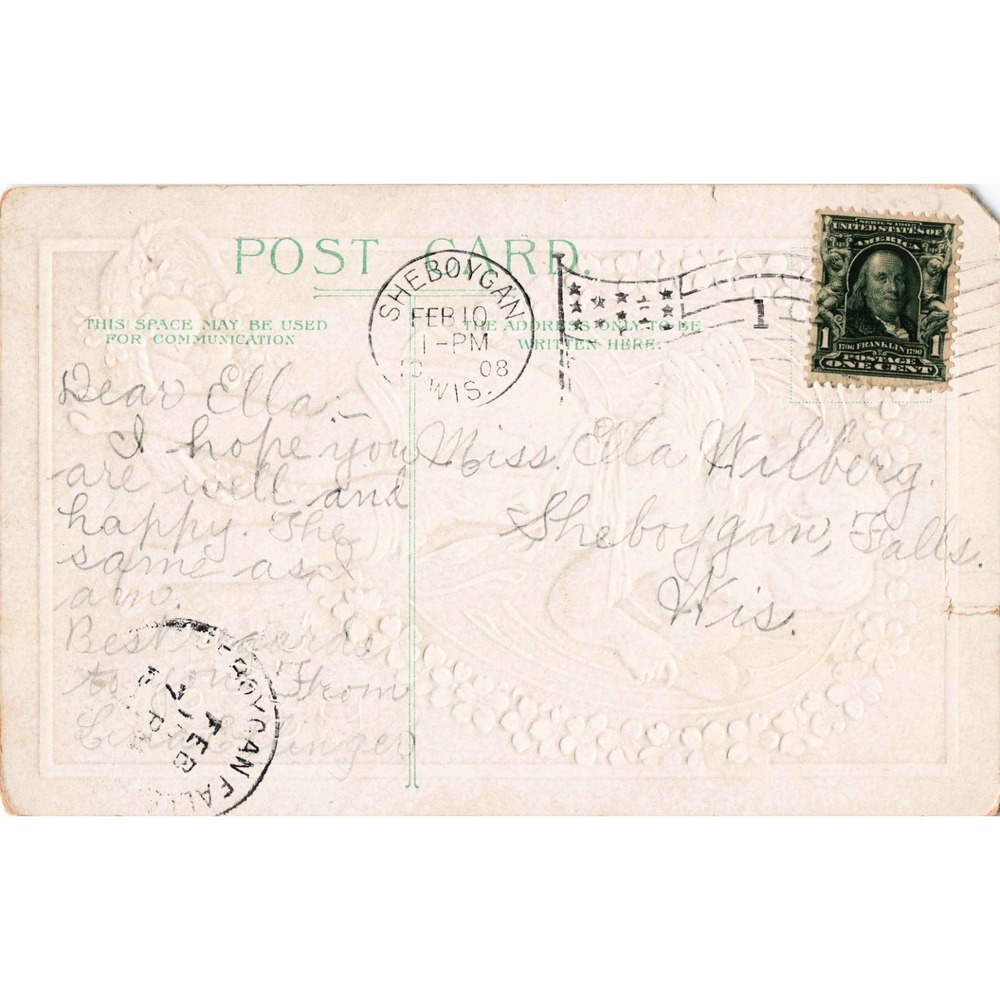 POST CARD.
THIS SPACE MAY BE USED
FOR COMMUNICATION
THE ADDRESS ONLY TO BE
WRITTEN HERE.
SHEBOYGAN
FEB 10
1-PM
08
WIS.
1
SERIES 1902
UNITED STATES OF
AMERICA
1 1
1706 FRANKLIN 1790
POSTAGE
ONE CENT
Dear Ella:—
I hope you
are well and
happy. The
same as I
am.
Best
to you From
Miss. Ella Wilberg.
Sheboygan, Falls.
Wis.
SHEBOYGAN FALLS
FEB